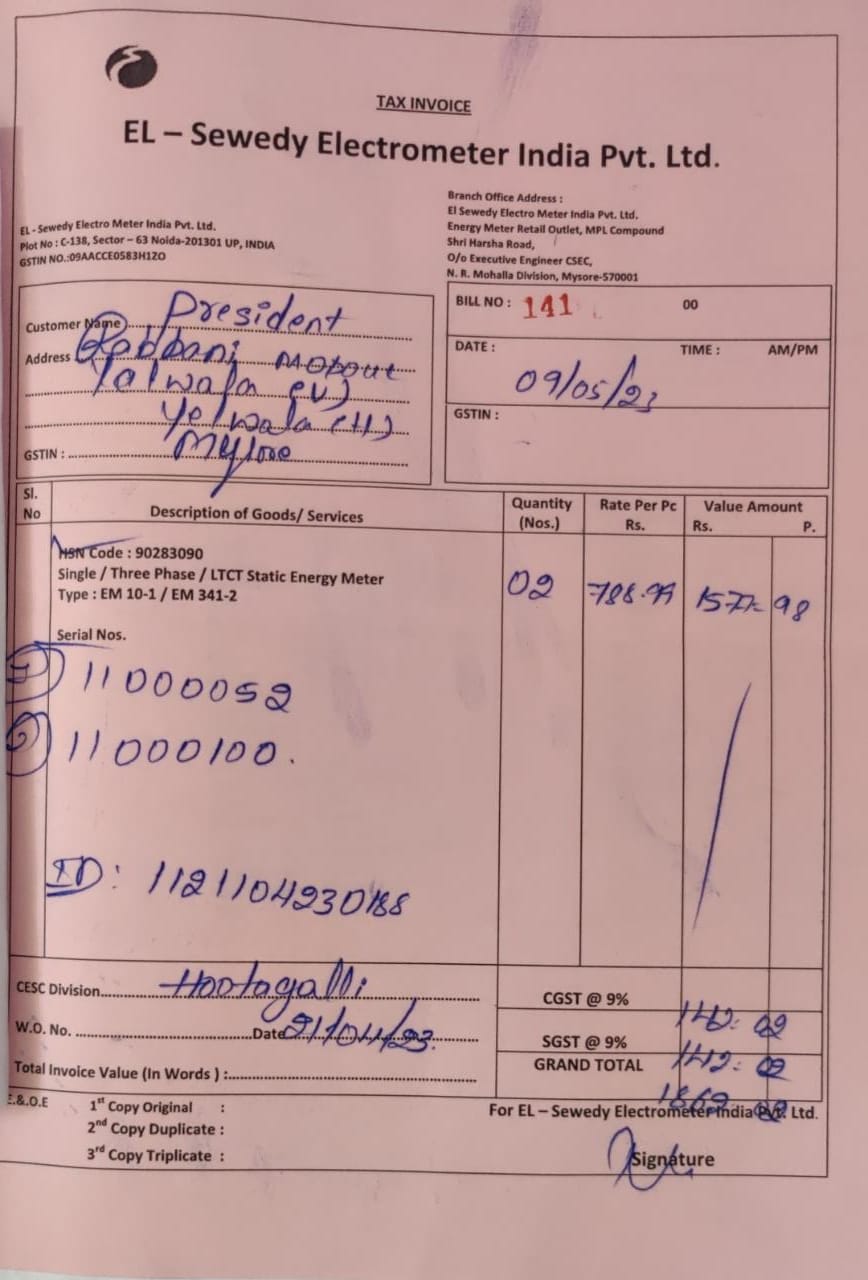 TAX INVOICE
EL – Sewedy Electrometer India Pvt. Ltd.
EL - Sewedy Electro Meter India Pvt. Ltd.
Plot No : C-138, Sector – 63 Noida-201301 UP, INDIA
GSTIN NO.:09AACCE0583H1ZO
Branch Office Address :
El Sewedy Electro Meter India Pvt. Ltd.
Energy Meter Retail Outlet, MPL Compound
Shri Harsha Road,
O/o Executive Engineer CSEC,
N. R. Mohalla Division, Mysore-570001
Customer Name President
Address Rabbani
Yalwala (V)
Yelwala (H)
GSTIN : Mysore
BILL NO : 141 00
DATE : TIME : AM/PM
09/05/23
GSTIN :
Sl. No Description of Goods/ Services Quantity (Nos.) Rate Per Pc Rs. Value Amount Rs. P.
HSN Code : 90283090
Single / Three Phase / LTCT Static Energy Meter 02 788.99 1577=98
Type : EM 10-1 / EM 341-2
Serial Nos.
1) 11000052
2) 11000100.
ID: 1121104230188
CESC Division Hootagalli
W.O. No. Date 21/04/23.
Total Invoice Value (In Words ) :
CGST @ 9% 142=02
SGST @ 9% 142=02
GRAND TOTAL 1862
E.&.O.E 1st Copy Original :
2nd Copy Duplicate :
3rd Copy Triplicate :
For EL – Sewedy Electrometer India Pvt. Ltd.
Signature